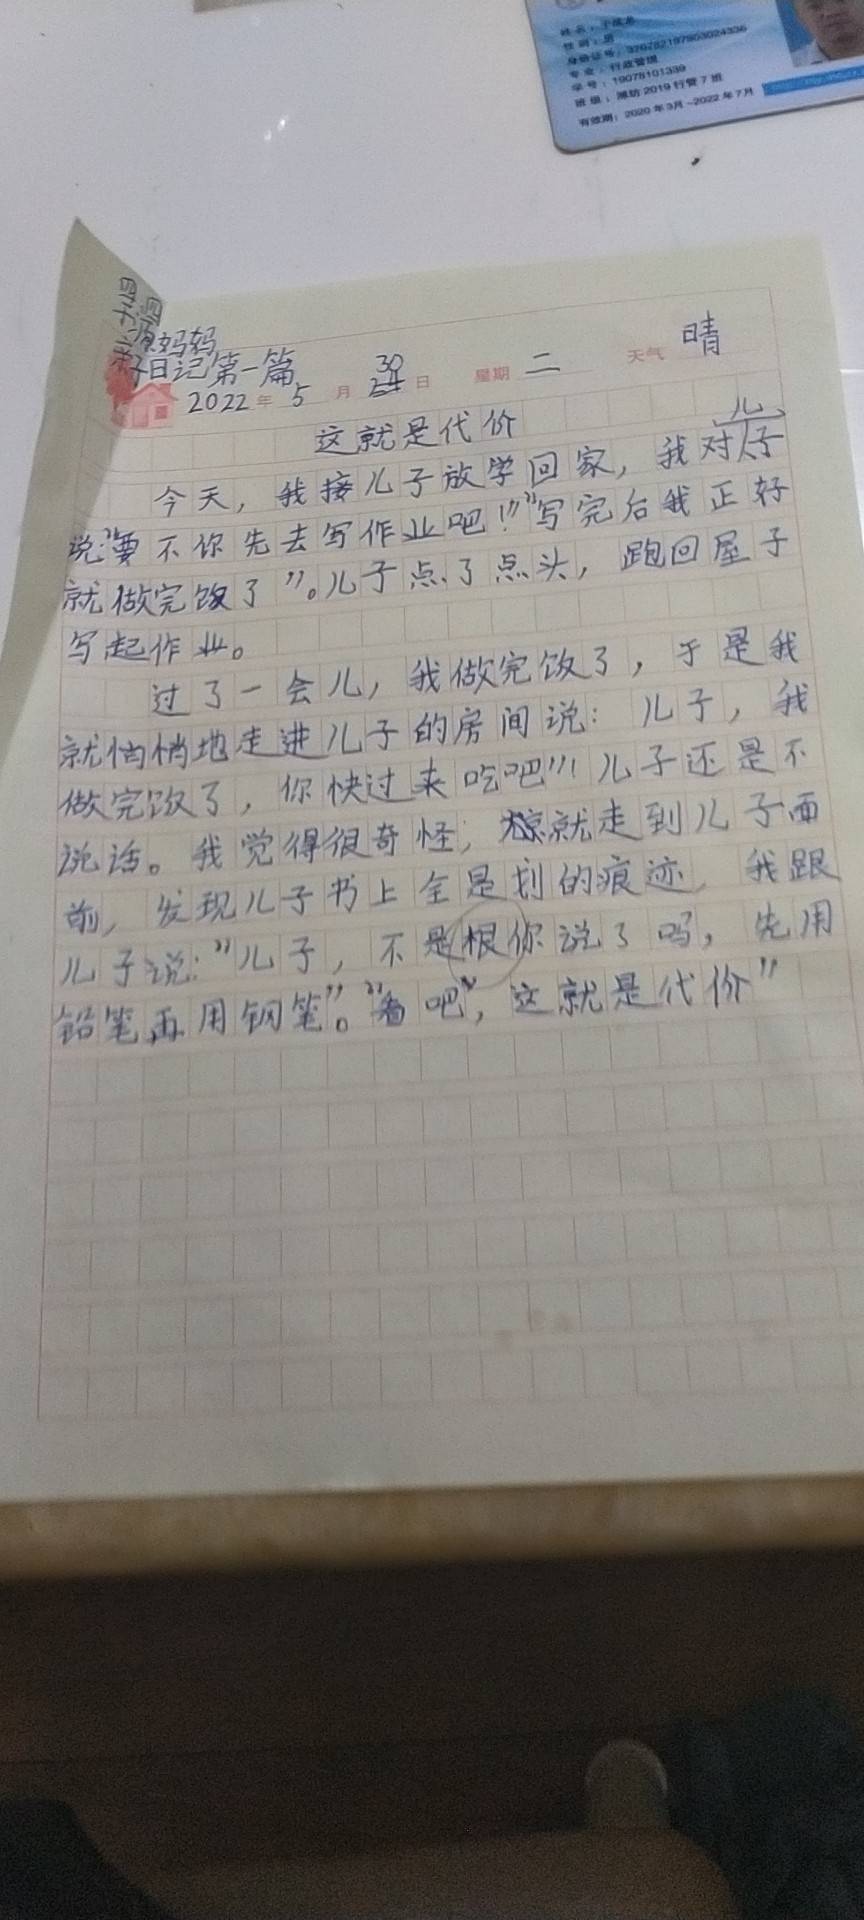 性别：男
身份证号：370782197903024336
专业：行政管理
学号：19078101339
班级：潍坊2019行管7班
有效期：2020年3月-2022年7月
妈妈
日记第一篇
2022年 5 月 30 日 星期 二 天气 晴
这就是代价
今天，我接儿子放学回家，我对儿子
说：“要不你先去写作业吧！”写完后我正好
就做完饭了”。儿子点了点头，跑回屋子
写起作业。
过了一会儿，我做完饭了，于是我
就悄悄地走进儿子的房间说：儿子，我
做完饭了，你快过来吃吧！儿子还是不
说话。我觉得很奇怪，就走到儿子面
前，发现儿子书上全是划的痕迹，我跟
儿子说：”儿子，不是根你说了吗，先用
铅笔再用钢笔”。“看吧”，这就是代价”